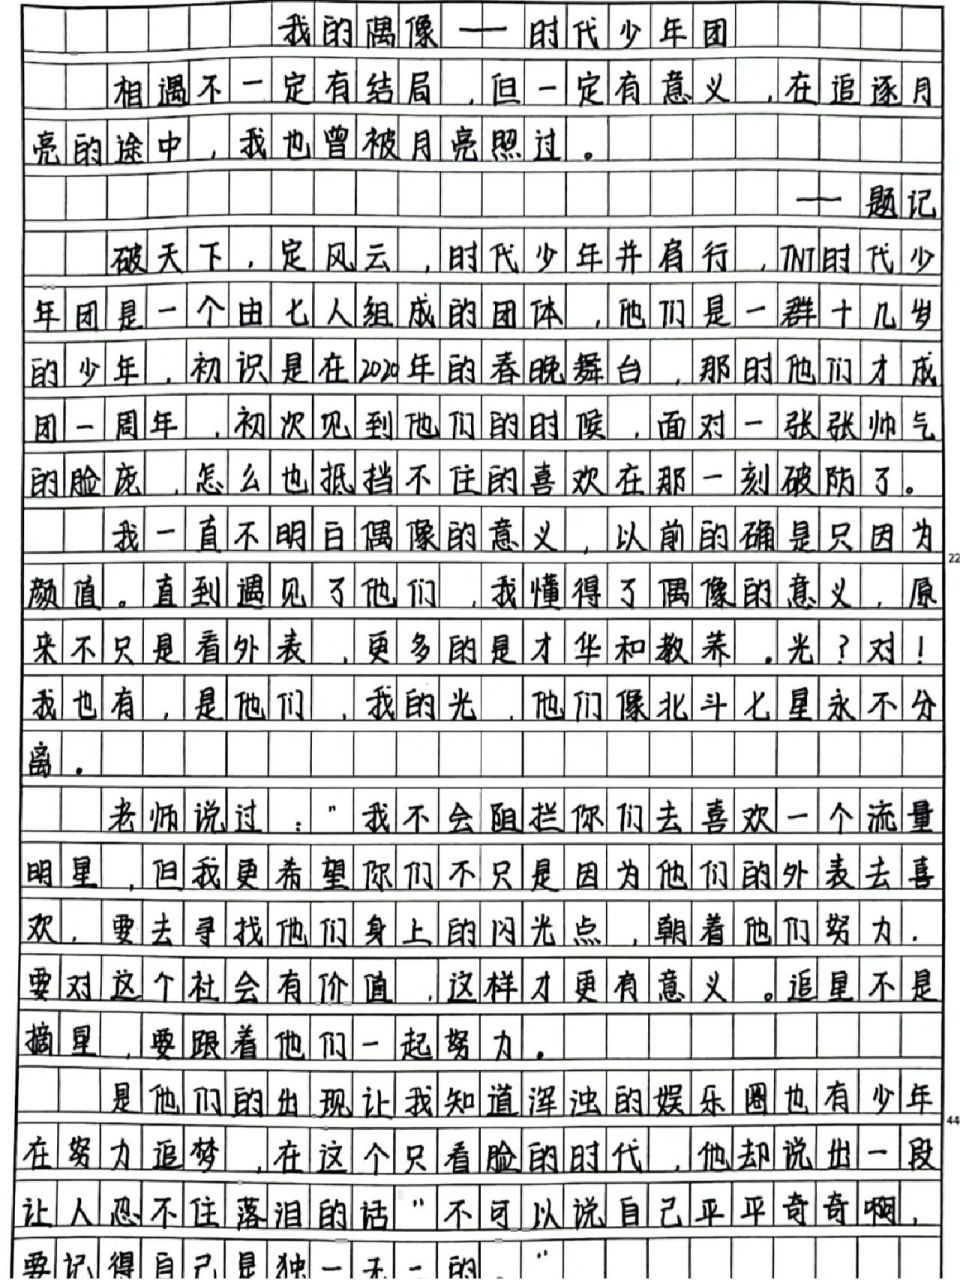 我的偶像——时代少年团
相遇不一定有结局,但一定有意义,在追逐月
亮的途中,我也曾被月亮照过。
——题记
破天下,定风云,时代少年并肩行,TNT时代少
年团是一个由七人组成的团体,他们是一群十几岁
的少年,初识是在2020年的春晚舞台,那时他们才成
团一周年,初次见到他们的时候,面对一张张帅气
的脸庞,怎么也抵挡不住的喜欢在那一刻破防了。
我一直不明白偶像的意义,以前的确是只因为
颜值。直到遇见了他们,我懂得了偶像的意义,原
来不只是看外表,更多的是才华和教养。光?对!
我也有,是他们,我的光,他们像北斗七星永不分
离.
老师说过:"我不会阻拦你们去喜欢一个流量
明星,但我更希望你们不只是因为他们的外表去喜
欢,要去寻找他们身上的闪光点,朝着他们努力.
要对这个社会有价值,这样才更有意义。追星不是
摘星,要跟着他们一起努力.
是他们的出现让我知道浑浊的娱乐圈也有少年
在努力追梦,在这个只看脸的时代,他却说出一段
让人忍不住落泪的话"不可以说自己平平奇奇啊,
要记得自己是独一无二的."
22
44